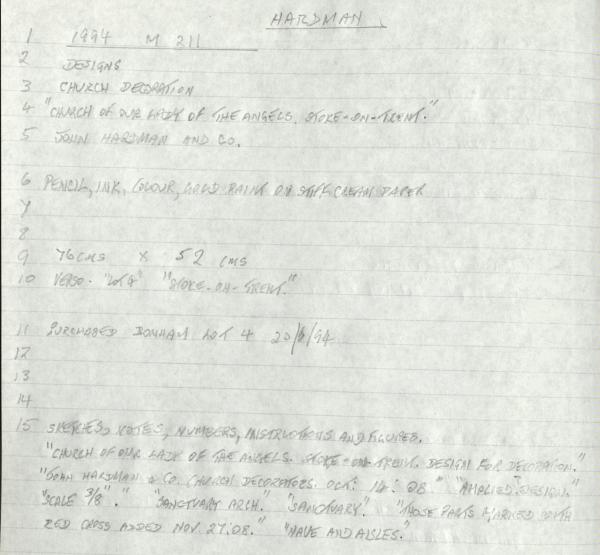 HARDMAN
1 1994 M 211
2 DESIGNS
3 CHURCH DECORATION
4 "CHURCH OF OUR LADY OF THE ANGELS. STOKE-ON-TRENT."
5 JOHN HARDMAN AND CO.
6 PENCIL, INK, COLOUR, GOLD PAINT ON STIFF CREAM PAPER
7
8
9 76 CMS X 52 CMS
10 VERSO. "LOT 4" "STOKE-ON-TRENT."
11 PURCHASED BONHAM LOT 4 20/ /94
12
13
14
15 SKETCHES, NOTES, NUMBERS, INSTRUCTIONS AND FIGURES.
"CHURCH OF OUR LADY OF THE ANGELS. STOKE-ON-TRENT. DESIGN FOR DECORATION."
"JOHN HARDMAN & CO. CHURCH DECORATORS. OCT: 14: 08" DESIGN."
"SCALE 3/8"." "SANCTUARY ARCH." "SANCTUARY." "THOSE PARTS MARKED WITH
RED CROSS ADDED NOV. 27:08." "NAVE AND AISLES."